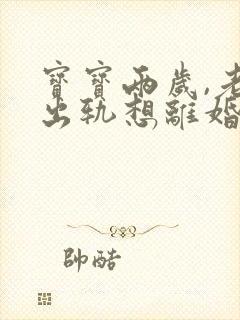 寶寶兩歲,老
出軌想離婚
帥酷